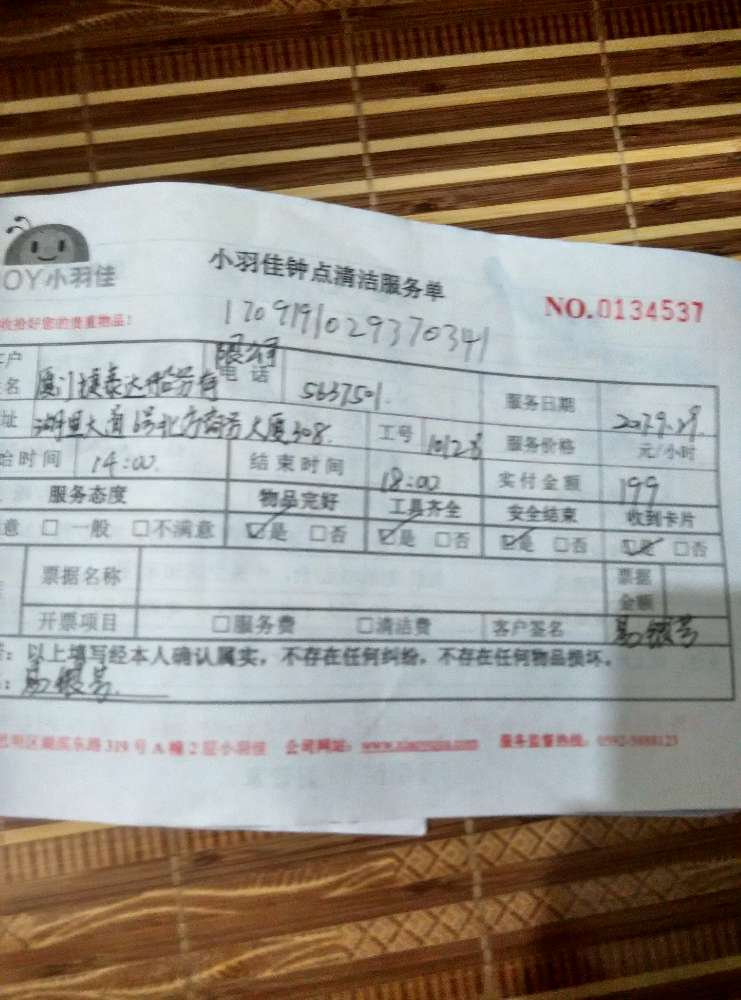 OY小羽佳
小羽佳钟点清洁服务单
NO.0134537
收拾好您的贵重物品！
1709191029370341
户
名
厦门捷泰达
限公司
电 话
5637501
服务日期
2017.9.29.
址
湖里大道6号北方商务大厦308.
工号
10128
服务价格
元/小时
始时间
14:00
结束时间
18:00
实付金额
199
服务态度
物品完好
工具齐全
安全结束
收到卡片
意 □ 一般 □不满意
☑是 □否
☑是 □否
☑是 □否
☑是 □否
票据名称
票据
金额
开票项目
□服务费
□清洁费
客户签名
：以上填写经本人确认属实，不存在任何纠纷，不存在任何物品损坏。
明区湖滨东路319号A幢2层小羽佳
公司网站：
服务监督热线：